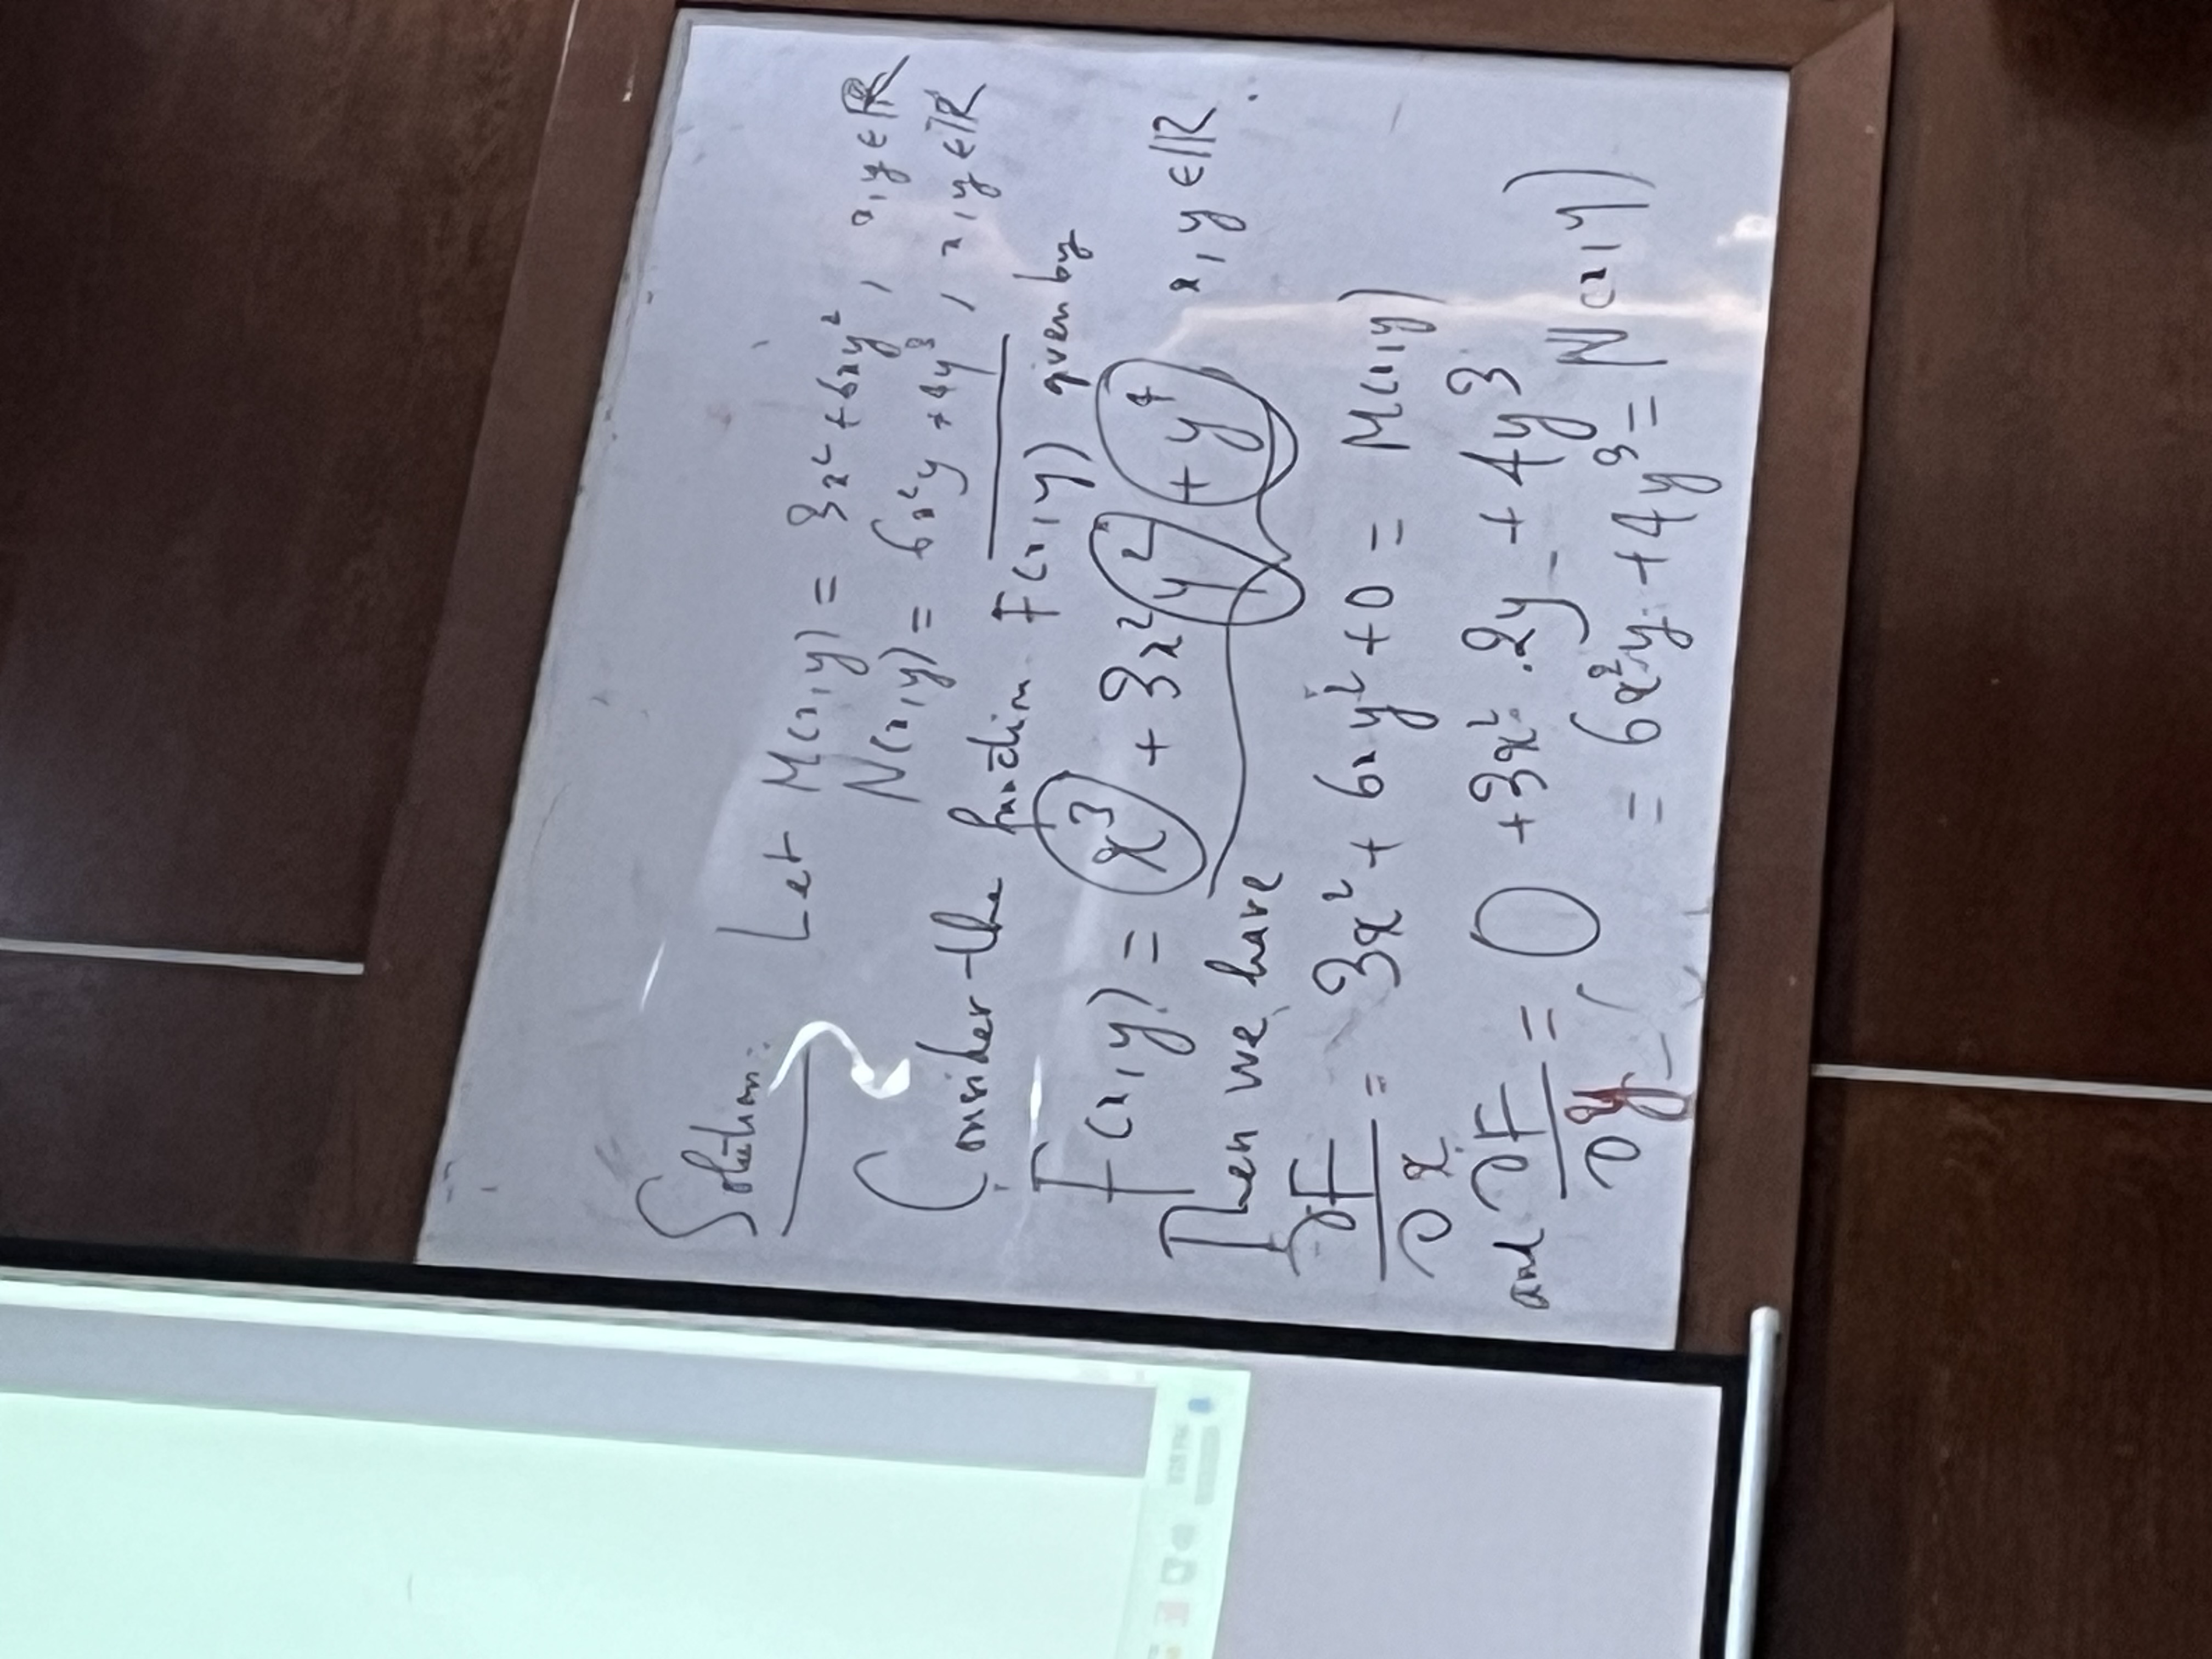 Solution: Let M(x,y) = 3x² + 6xy², x,y ∈ ℝ
N(x,y) = 6x²y + 4y³, x,y ∈ ℝ
Consider the function F(x,y) given by
F(x,y) = x³ + 3x²y² + y⁴ x, y ∈ ℝ.
Then we have
∂F/∂x = 3x² + 6xy² + 0 = M(x,y)
and ∂F/∂y = 0 + 3x² . 2y + 4y³
= 6x²y + 4y³ = N(x,y)